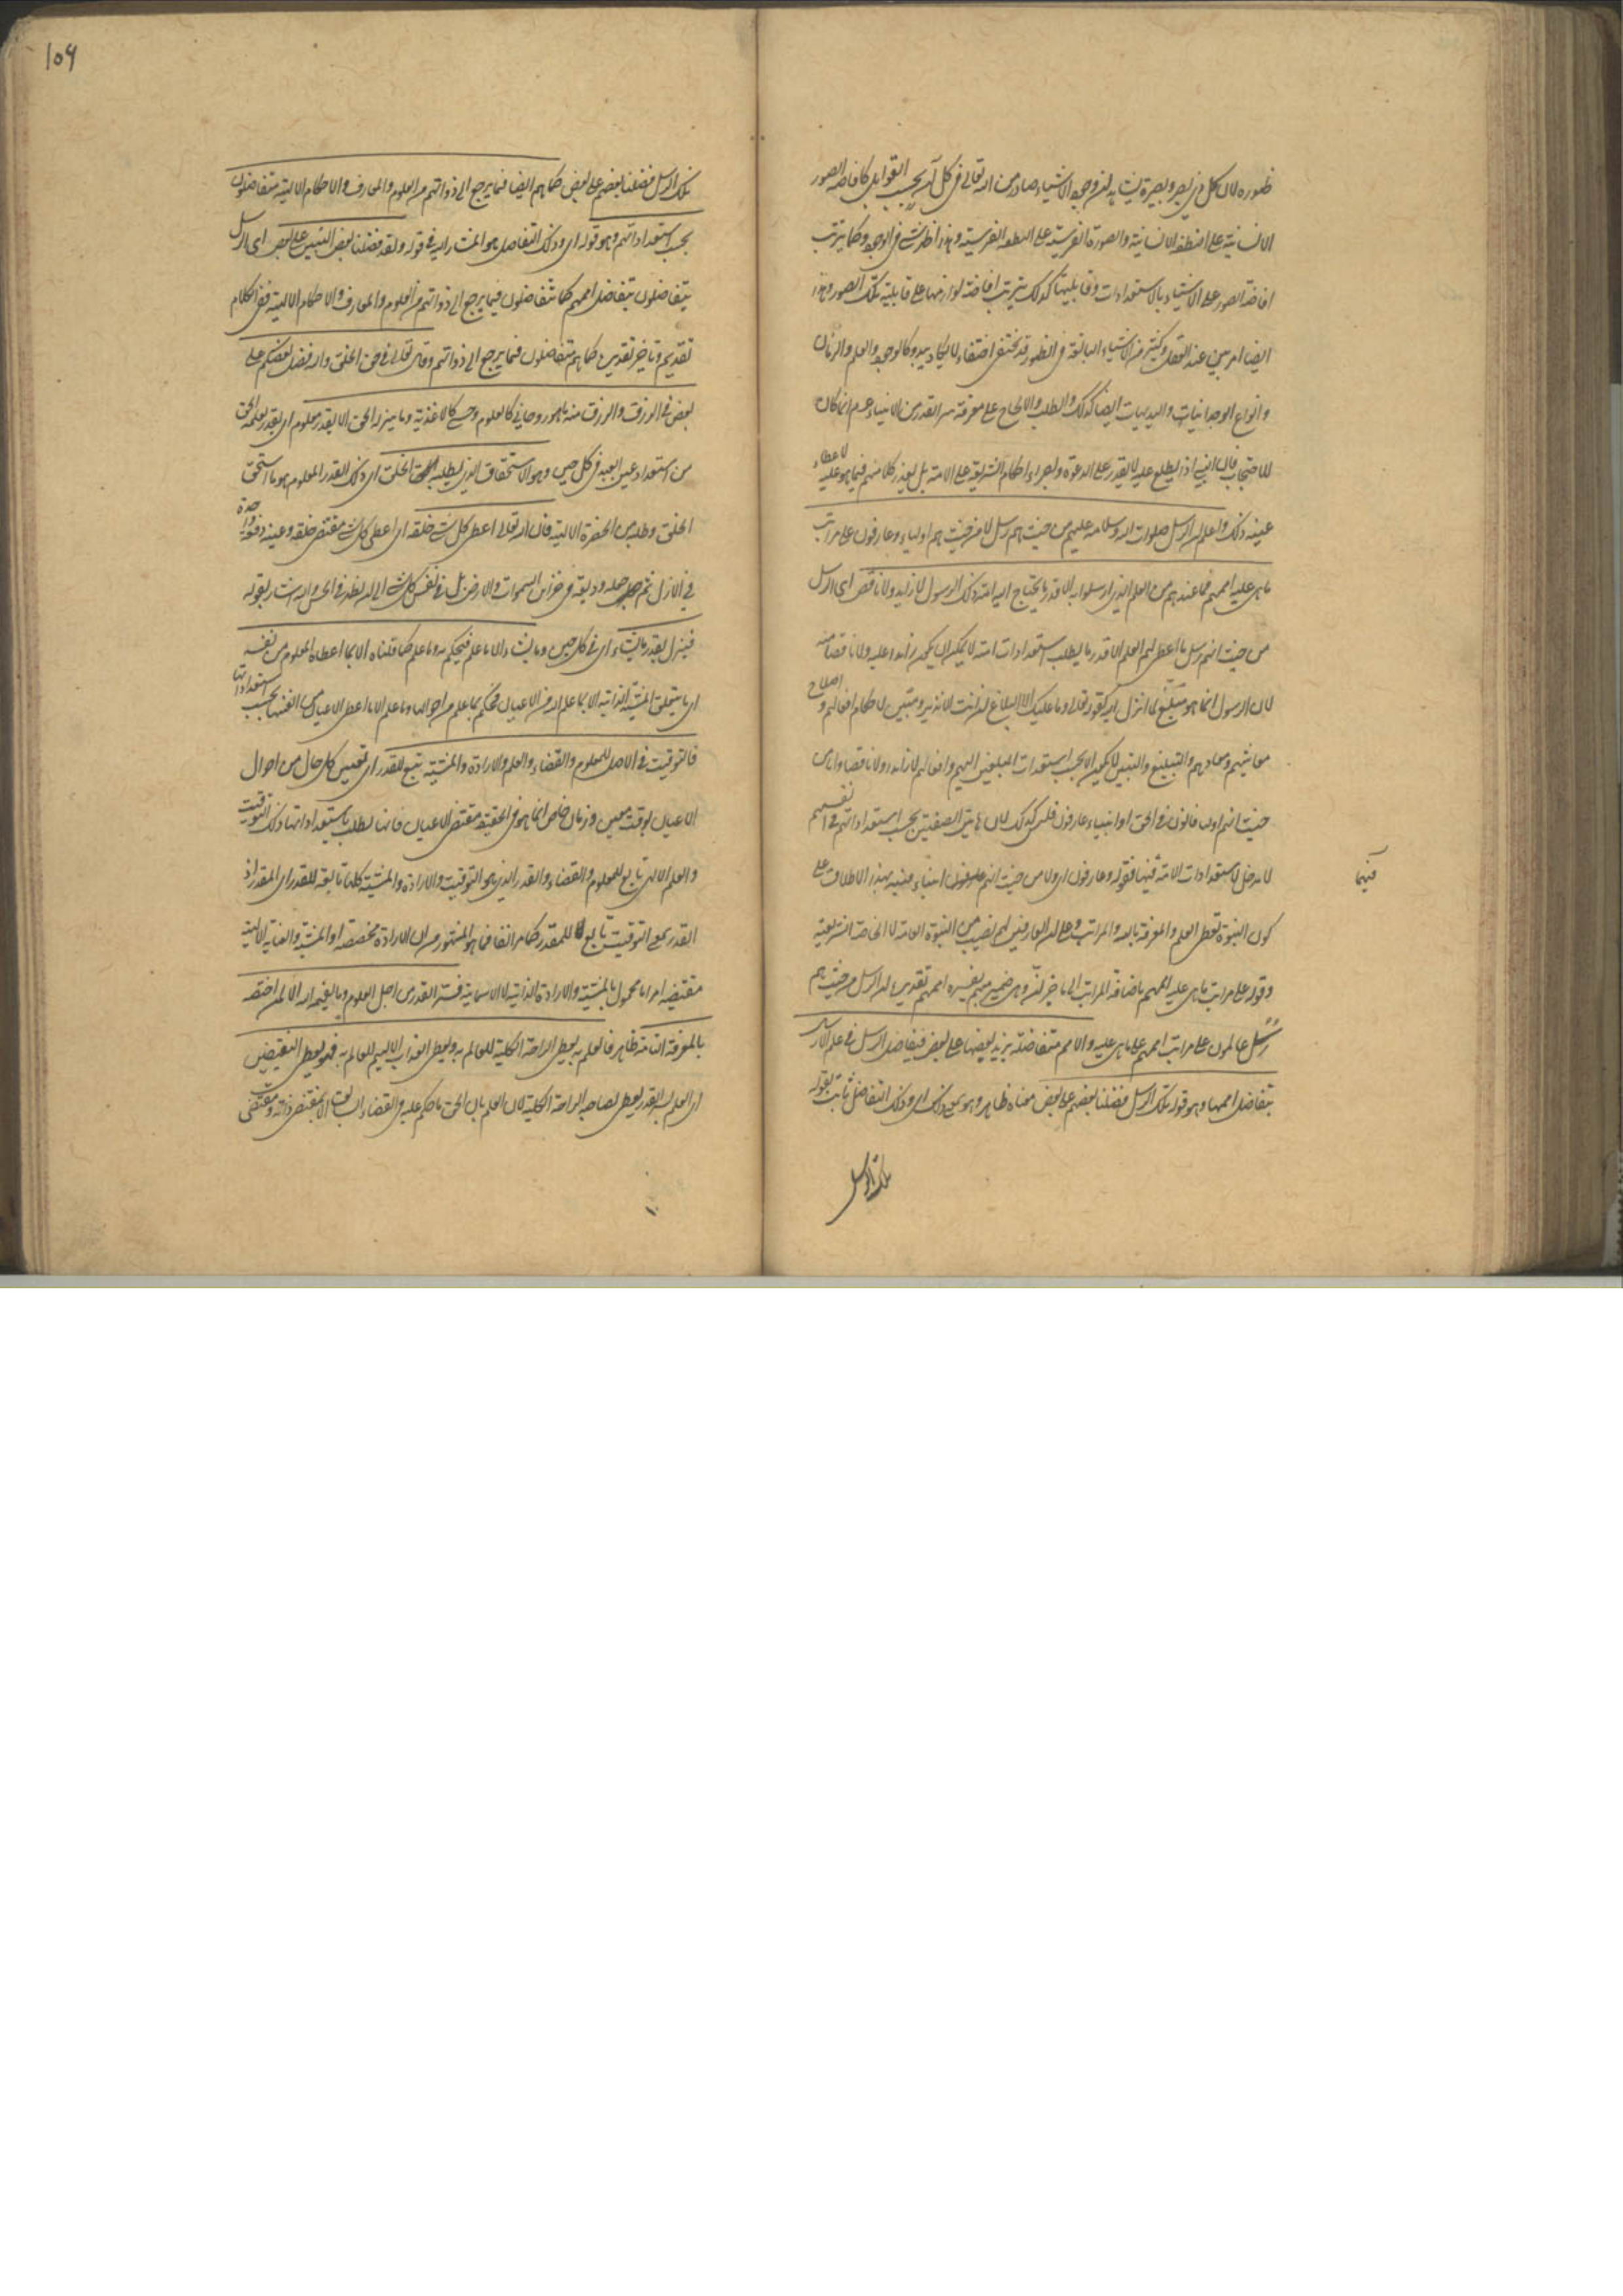 ظهوره لان كل ذي بصر وبصيرة يشاهد ان وجود الاشياء صادر من الله تعالى في كل آن بحسب القوابل كافاضة الصور
الانسانية على النطفة الانسانية والصورة الفرسية على النطفة الفرسية وهذا اظهر شي في الوجود وكما يترتب
افاضة الصور على الاشياء بالاستعدادات وقابليتها كذلك يترتب افاضة لوازمها على قابلية تلك الصور وهذا
ايضا امر بين عند العقل وكثير من الاشياء البالغة في الظهور قد يختفي اختفاء لا يكاد يبدو كالوجود والعلم والزمان
وانواع الوجدانيات والبديهيات ايضا كذلك والطلب والالحاح على معرفة سر القدر من الانبياء عم انما كان
للاحتجاب فان النبي اذا يطلع عليه لا يقدر على الدعوة واجراء احكام الشريعة على الامة بل يعذر كلا منهم فيما هو عليه لاعطاء
عينه ذلك واعلم ان الرسل صلوات الله وسلامه عليهم من حيث هم رسل لا من حيث هم اولياء وعارفون على مراتب
ما هي عليه اممهم فما عندهم من العلم الذي ارسلوا به الا قدر ما يحتاج اليه امة ذلك الرسول لا زايد ولا ناقص اي الرسل
من حيث انهم رسل ما اعطي لهم العلم الا قدر ما يطلب استعدادات امته لا يمكن ان يكون زائدا عليه ولا ناقصا منه
لان الرسول انما هو مبلغ لما انزل اليه كقوله تعالى وما عليك الا البلاغ ان انت الا نذير ومبين لاحكام افعالهم واصلاح
معاشهم ومعادهم والتبليغ والتبيين لا يكون الا بحسب استعدادات المبلغين اليهم وافعالهم لا زائدا ولا ناقصا واما من
حيث انهم اولياء فانون في الحق او انبياء عارفون فليس كذلك لان هاتين الصفتين بحسب استعداداتهم في انفسهم
لا مدخل لاستعدادات الامة فيها فقوله وعارفون اي ولا من حيث انهم انبياء فنبه بهذا الاطلاق على
فيهما
كون النبوة تعطي العلم والمعرفة بالله والمراتب وعلى ان العارفين لهم نصيب من النبوة العامة لا الخاصة التشريعية
وقوله على مراتب ما هي عليه اممهم باضافة المراتب الى ما خبر لان وهي ضمير مبهم يفسره اممهم تقديره ان الرسل من حيث هم
رسل عالمون على مراتب اممهم على ما هي عليه والامم متفاضلة يزيد بعضها على بعض فيتفاضل الرسل في علم الارسال
بتفاضل اممها وهو قوله تلك الرسل فضلنا بعضهم على بعض معناه ظاهر وهو يعني ذلك اي وذلك التفاضل ثابت بقوله
تلك الرسل
۱۵۶
تلك الرسل فضلنا بعضهم على بعض كما هم ايضا فيما يرجع الى ذواتهم من العلوم والمعارف والاحكام الالهية متفاضلون
بحسب استعداداتهم وهو قوله اي وذلك التفاضل هو المشار اليه في قوله ولقد فضلنا بعض النبيين على بعض اي الرسل
يتفاضلون بتفاضل اممهم كما يتفاضلون فيما يرجع الى ذواتهم من العلوم والمعارف والاحكام الالهية ففي الكلام
تقديم وتاخير تقديره كما هم متفاضلون فيما يرجع الى ذواتهم وقال تعالى في حق الخلق والله فضل بعضكم على
بعض في الرزق والرزق منه ما هو روحاني كالعلوم وحسي كالاغذية وما ينزله الحق الا بقدر معلوم اي بقدر يعلمه الحق
من استعداد عين العبد في كل حين وهو الاستحقاق الذي يطلبه الخلق اي ذلك القدر المعلوم هو ما استحق
الخلق وطلبه من الحضرة الالهية فان الله تعالى اعطى كل شي خلقه اي اعطى كل شي مقتضى خلقه وعينه دفعة واحدة
في الازل ثم جعله وديعة في خزائن السموات والارض بل في نفس كل شي الى ان يظهر في الحس واليه اشار بقوله
فينزل بقدر ما يشاء اي في كل حين وما يشاء الا ما علم فيحكم به وما علم كما قلناه الا بما اعطاه المعلوم من نفسه
اي ما يتعلق المشية الذاتية الا بما علم الله من الاعيان فحكم بما علم من احوالها وما علم الا ما اعطى الاعيان من انفسها بحسب استعداداتها
فالتوقيت في الاصل للمعلوم والقضاء والعلم والارادة والمشية تبع للقدر اي تعيين كل حال من احوال
الاعيان بوقت معين وزمان خاص انما هو في الحقيقة مقتضى الاعيان فانها تطلب باستعداداتها ذلك التوقيت
والعلم الالهي تابع للمعلوم والقضاء والقدر الذي هو التوقيت والارادة والمشية كلها تابعة للقدر اي المقدر اذ
القدر بمعنى التوقيت تابع للمقدر كما مر انفا فما هو المشهور من ان الارادة مخصصة او المشية والعناية الالهية
مقتضية امرا ما محمول بالمشية والارادة الذاتية لا الاسمائية فسر القدر من اجل العلوم وما يفهمه الله الا لمن اختصه
بالمعرفة التامة ظاهر فالعلم به يعطي الراحة الكلية للعالم به ويعطي العذاب الاليم للعالم به فهو يعطي النقيضين
اي العلم بسر القدر يعطي لصاحبه الراحة الكلية لان العلم بان الحق ما حكم عليه في القضاء السابق الا بمقتضى ذاته ومقتضى